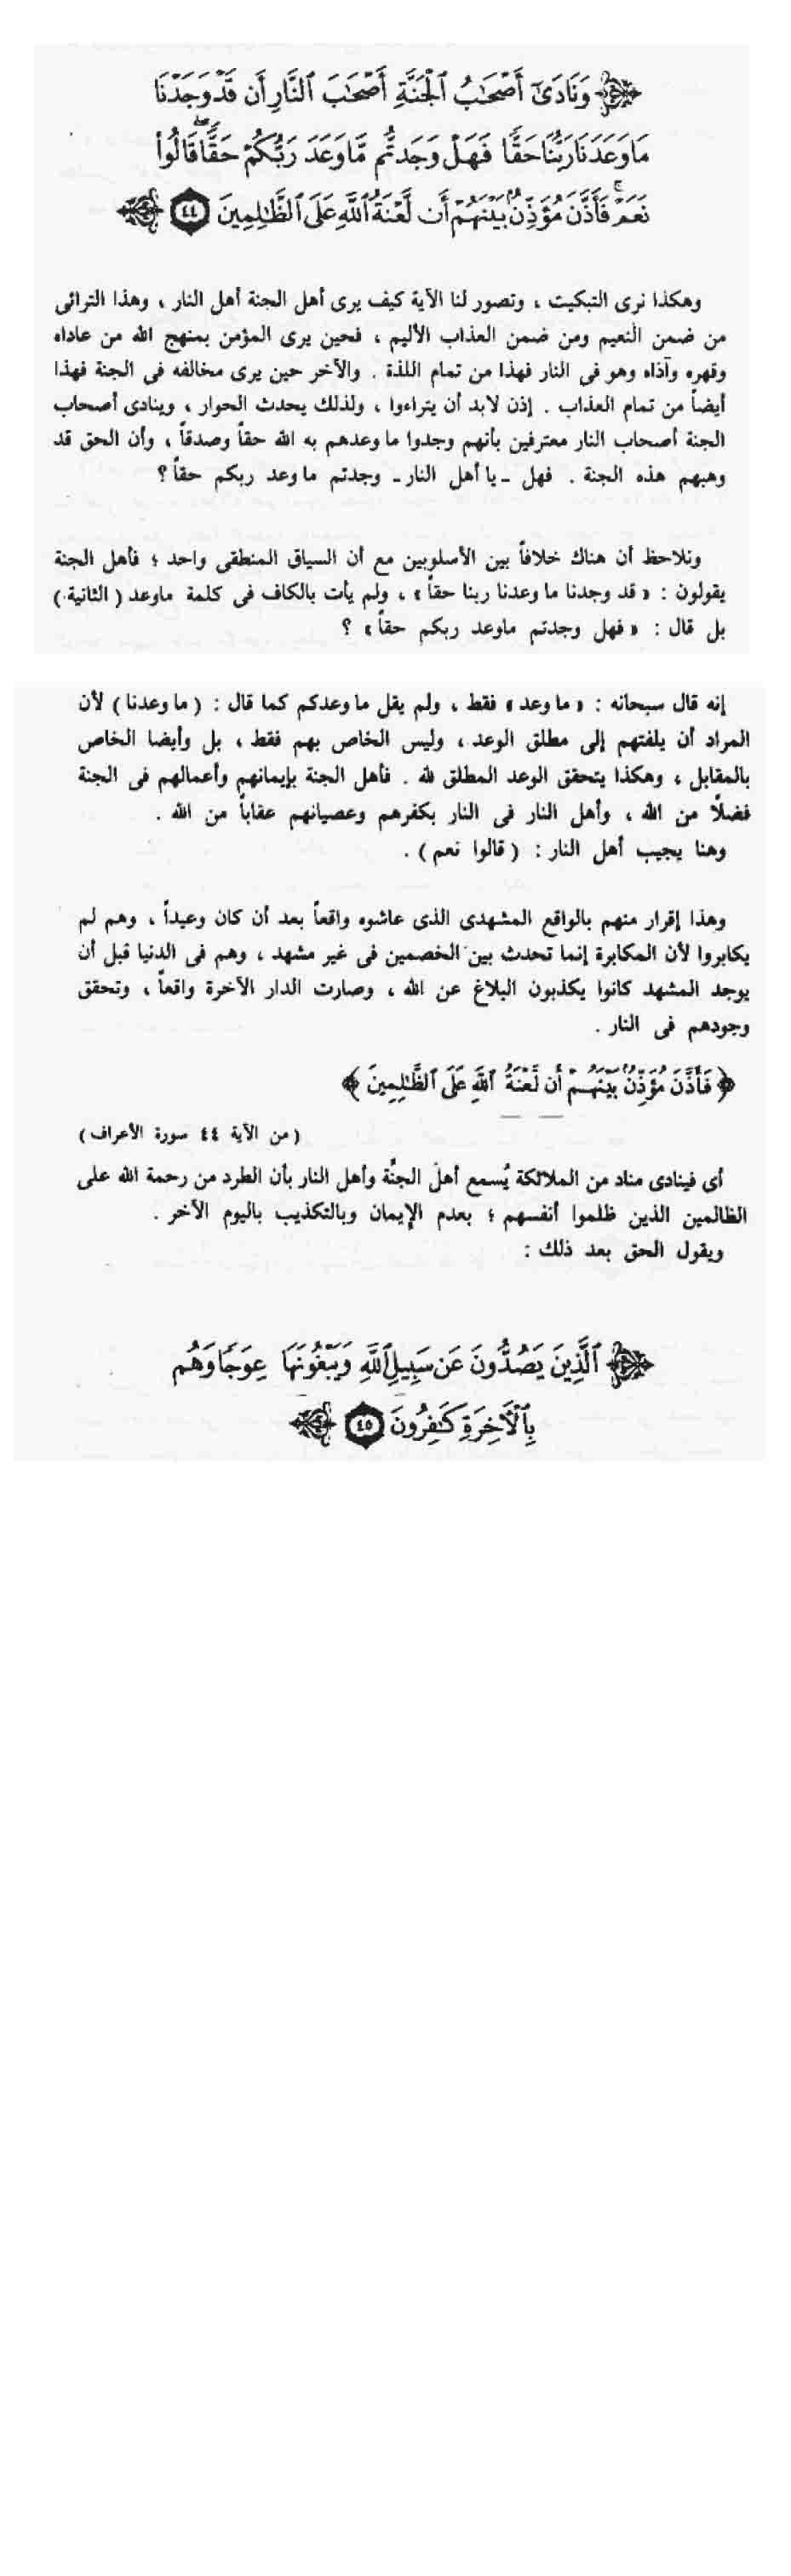 وَنَادَىٰٓ أَصْحَٰبُ ٱلْجَنَّةِ أَصْحَٰبَ ٱلنَّارِ أَن قَدْ وَجَدْنَا
مَا وَعَدَنَا رَبُّنَا حَقًّا فَهَلْ وَجَدتُّم مَّا وَعَدَ رَبُّكُمْ حَقًّا ۖ قَالُوا۟
نَعَمْ ۚ فَأَذَّنَ مُؤَذِّنٌۢ بَيْنَهُمْ أَن لَّعْنَةُ ٱللَّهِ عَلَى ٱلظَّٰلِمِينَ ٤٤
وهكذا نرى التبكيت ، وتصور لنا الآية كيف يرى أهل الجنة أهل النار ، وهذا الترائى
من ضمن النعيم ومن ضمن العذاب الأليم ، فحين يرى المؤمن بمنهج الله من عاداه
وقهره وآذاه وهو فى النار فهذا من تمام اللذة . والآخر حين يرى مخالفه فى الجنة فهذا
أيضاً من تمام العذاب . إذن لابد أن يتراءوا ، ولذلك يحدث الحوار ، وينادى أصحاب
الجنة أصحاب النار معترفين بأنهم وجدوا ما وعدهم به الله حقاً وصدقاً ، وأن الحق قد
وهبهم هذه الجنة . فهل ـ يا أهل النار ـ وجدتم ما وعد ربكم حقاً ؟
ونلاحظ أن هناك خلافاً بين الأسلوبين مع أن السياق المنطقى واحد ؛ فأهل الجنة
يقولون : « قد وجدنا ما وعدنا ربنا حقاً » ، ولم يأت بالكاف فى كلمة ماوعد ( الثانية )
بل قال : « فهل وجدتم ماوعد ربكم حقاً » ؟
إنه قال سبحانه : « ما وعد » فقط ، ولم يقل ما وعدكم كما قال : ( ما وعدنا ) لأن
المراد أن يلفتهم إلى مطلق الوعد ، وليس الخاص بهم فقط ، بل وأيضا الخاص
بالمقابل ، وهكذا يتحقق الوعد المطلق لله . فأهل الجنة بإيمانهم وأعمالهم فى الجنة
فضلًا من الله ، وأهل النار فى النار بكفرهم وعصيانهم عقاباً من الله .
وهنا يجيب أهل النار : ( قالوا نعم ) .
وهذا إقرار منهم بالواقع المشهدى الذى عاشوه واقعاً بعد أن كان وعيداً ، وهم لم
يكابروا لأن المكابرة إنما تحدث بين الخصمين فى غير مشهد ، وهم فى الدنيا قبل أن
يوجد المشهد كانوا يكذبون البلاغ عن الله ، وصارت الدار الآخرة واقعاً ، وتحقق
وجودهم فى النار .
﴿ فَأَذَّنَ مُؤَذِّنٌۢ بَيْنَهُمْ أَن لَّعْنَةُ ٱللَّهِ عَلَى ٱلظَّٰلِمِينَ ﴾
( من الآية ٤٤ سورة الأعراف )
أى فينادى مناد من الملائكة يُسمع أهل الجنَّة وأهل النار بأن الطرد من رحمة الله على
الظالمين الذين ظلموا أنفسهم ؛ بعدم الإيمان وبالتكذيب باليوم الآخر .
ويقول الحق بعد ذلك :
ٱلَّذِينَ يَصُدُّونَ عَن سَبِيلِ ٱللَّهِ وَيَبْغُونَهَا عِوَجًا وَهُم
بِٱلْءَاخِرَةِ كَٰفِرُونَ ٤٥